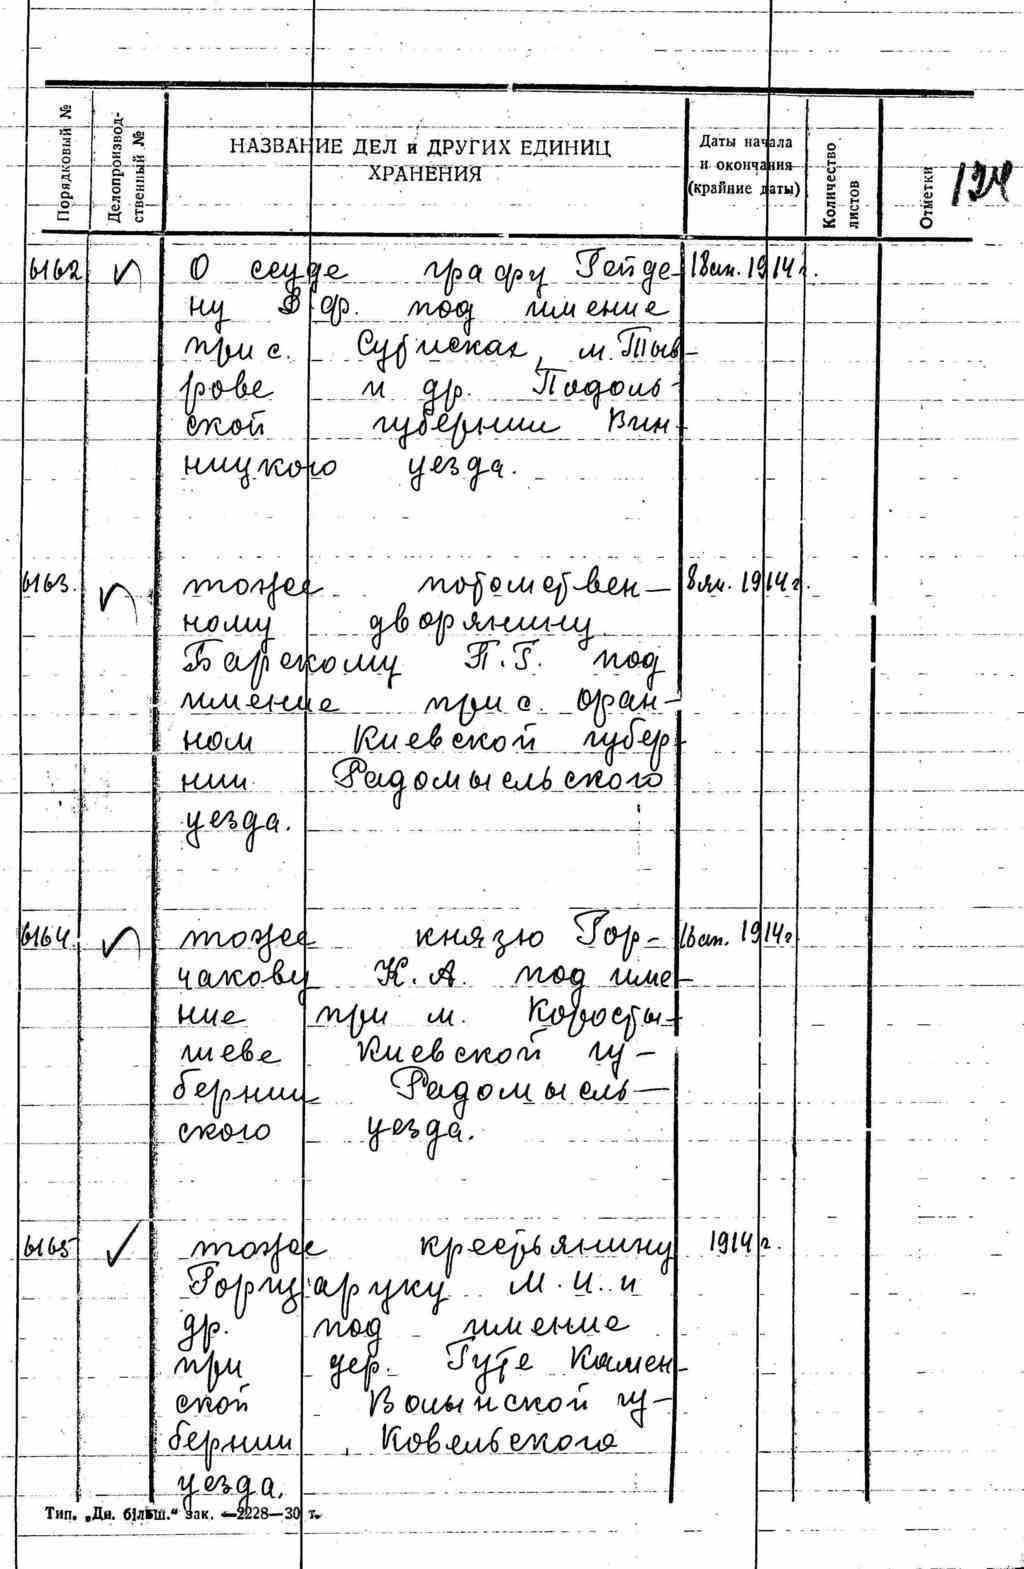 Порядковый №
Делопроизводственный №
НАЗВАНИЕ ДЕЛ и ДРУГИХ ЕДИНИЦ
ХРАНЕНИЯ
Даты начала
и окончания
(крайние даты)
Количество
листов
Отметки
124
6162 О ссуде графу Гейде- 18 ап. 1914 г.
ну Д. Ф. под имение
при с. Сутисках, м. Тыв-
рове и др. Подоль-
ской губернии Вин-
ницкого уезда.
6163. тоже потомствен- 8 ян. 1914 г.
ному дворянину
Барскому П. Г. под
имение при с. Оран-
ном Киевской губер-
нии Радомысльского
уезда.
6164. тоже князю Гор- 16 ап. 1914 г.
чакову К. А. под име-
ние при м. Коросты-
шеве Киевской гу-
бернии Радомысль-
ского уезда.
6165 тоже крестьянину 1914 г.
М. И. и
др. под имение
при дер. Гуте Камен-
ской Волынской гу-
бернии Ковельского
уезда.
Тип. „Дн. більш.“ зак. —2228—30 т.